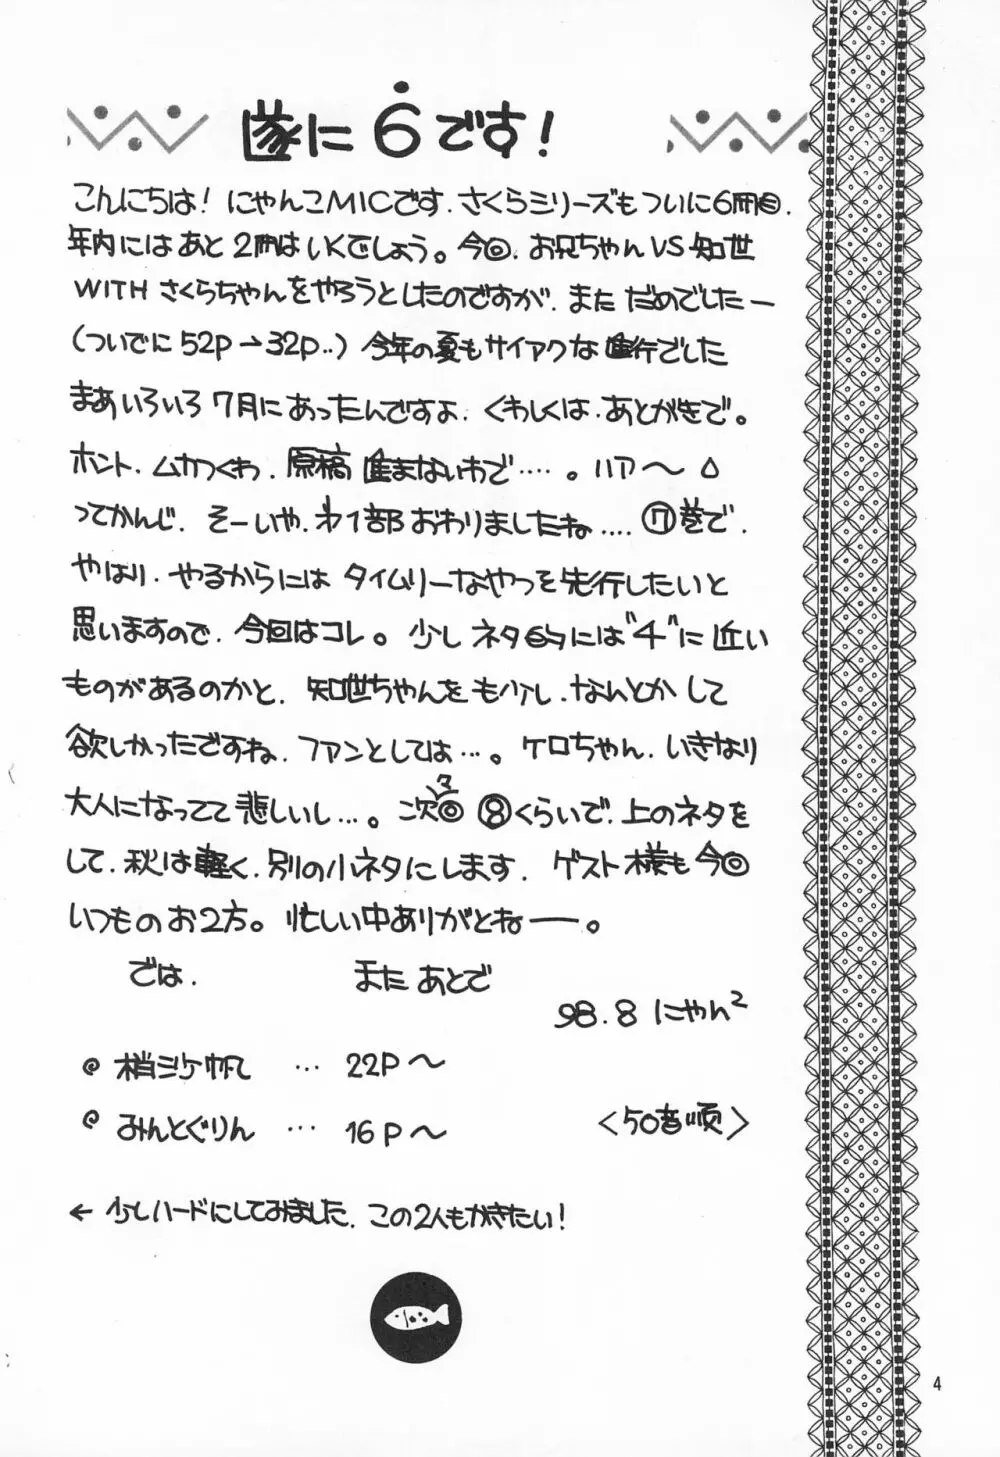 遂に6です!
こんにちは!にゃんこMICです.さくらシリーズもついに6冊目.
年内にはあと2冊はいくでしょう。今回.お兄ちゃんVS知世
WITHさくらちゃんをやろうとしたのですが.まただめでしたー
(ついでに52P→32P..)今年の夏もサイアクな進行でした
まあいろいろ7月にあったんですよ.くわしくは.あとがきで。
ホント.ムカつくわ.原稿進まないわで……。ハァ〜
ってかんじ.そーいや.オ1部おわりましたね.... ⑦巻で.
やはり.やるからにはタイムリーなやつを先行したいと
思いますので.今回はコレ。少しネタ的には"4"に近い
ものがあるのかと.知世ちゃんをも少し.なんとかして
欲しかったですね.ファンとしては…。ケロちゃん.いきなり
大人になってて悲しいし…。次々回⑧くらいで.上のネタを
して.秋は軽く.別の小ネタにします.ゲスト様も今回
いつものお2方。忙しい中ありがとねー。
では. またあとで
98.8 にゃん²
梢シケ帆 … 22P〜
みんとぐりん … 16P〜 <50音順>
← 少しハードにしてみました.この2人もかきたい!
4